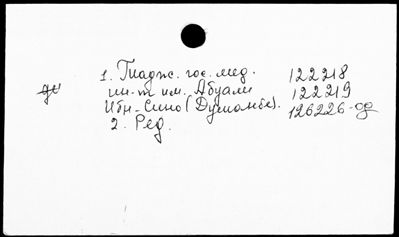 1. Тиадж. гос. мед. 122218
ин-т им. Абуали 122219
Ибн-Сино (Душанбе). 126226-од
2. Ред.